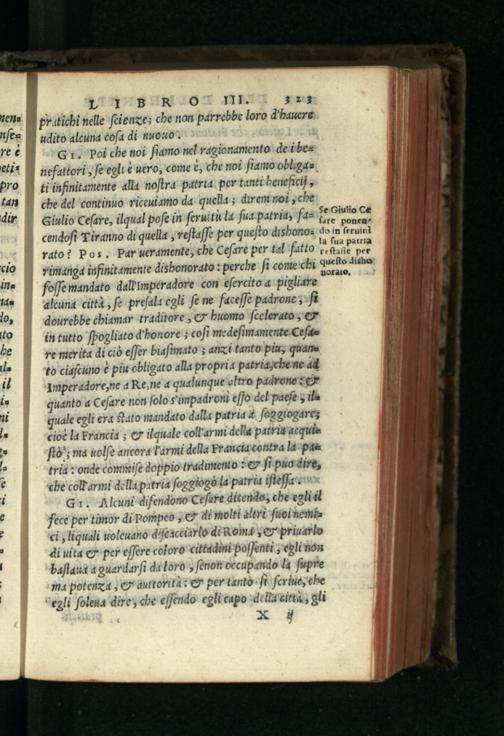 LIBRO III. 323
pratichi nelle scienze; che non parrebbe loro d'hauere
udito alcuna cosa di nuouo.
GI. Poi che noi siamo nel ragionamento de i be=
nefattori, se egli è uero, come è, che noi siamo obliga=
ti infinitamente alla nostra patria per tanti beneficij,
che del continuo riceuiamo da quella; diremnoi, che
Giulio Cesare, ilqual pose in seruitù la sua patria, fa=
cendosi Tiranno di quella, restasse per questo dishono=
rato? POS. Par ueramente, che Cesare per tal fatto
rimanga infinitamente dishonorato: perche si come chi
fosse mandato dall'Imperadore con esercito a pigliare
alcuna città, se presala egli se ne facesse padrone, si
dourebbe chiamar traditore, & huomo scelerato, &
in tutto spogliato d'honore; cosi medesimamente Cesa=
re merita di ciò esser biasimato; anzi tanto piu, quan=
to ciascuno è piu obligato alla propria patria, che ne ad
Imperadore, ne a Re, ne a qualunque altro padrone: &
quanto a Cesare non solo s'impadronì esso del paese, il=
quale egli era stato mandato dalla patria a soggiogare;
cioè la Francia; & ilquale coll'armi della patria acqui=
stò; ma uolse ancora l'armi della Francia contra la pa=
tria: onde commise doppio tradimento: & si puo dire,
che coll'armi della patria soggiogò la patria istessa.
GI. Alcuni difendono Cesare dicendo, che egli il
fece per timor di Pompeo, & di molti altri suoi nemi=
ci, liquali uoleuano discacciarlo di Roma, & priuarlo
di uita & per essere coloro cittadini possenti, egli non
bastaua a guardarsi da loro, senon occupando la supre
ma potenza, & auttorità: & per tanto si scriue, che
egli soleua dire, che essendo egli capo della città, gli
X ij
Se Giulio Ce
sare ponen=
do in seruitù
la sua patria
restasse per
questo disho
norato.